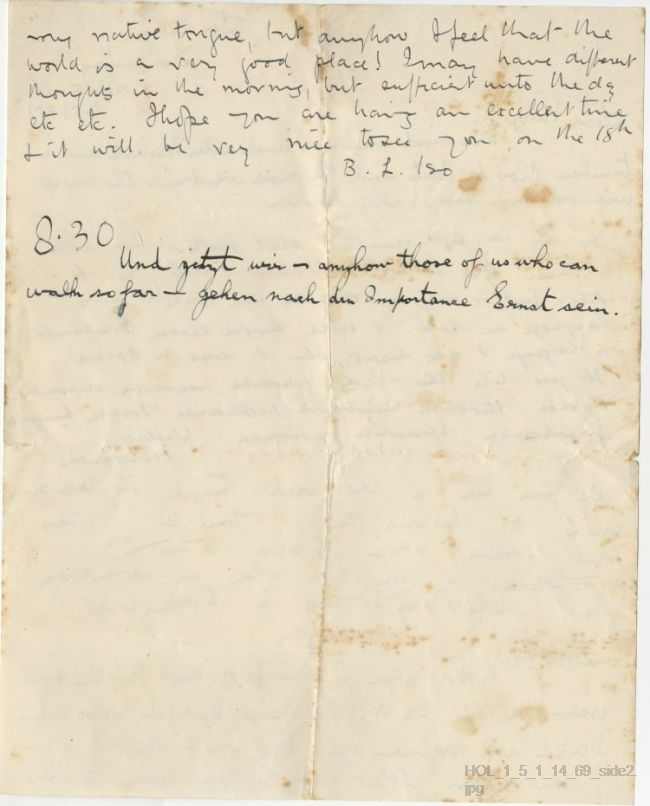 my native tongue, but anyhow I feel that the
world is a very good place! I may have different
thoughts in the morning, but sufficient unto the day
etc etc. I hope you are having an excellent time
& it will be very nice to see you on the 18th
B. L.
8.30
Und jetzt wir – anyhow those of us who can
walk so far – gehen nach den Importance Ernst sein.
HOL_1_5_1_14_69_side2.
jpg